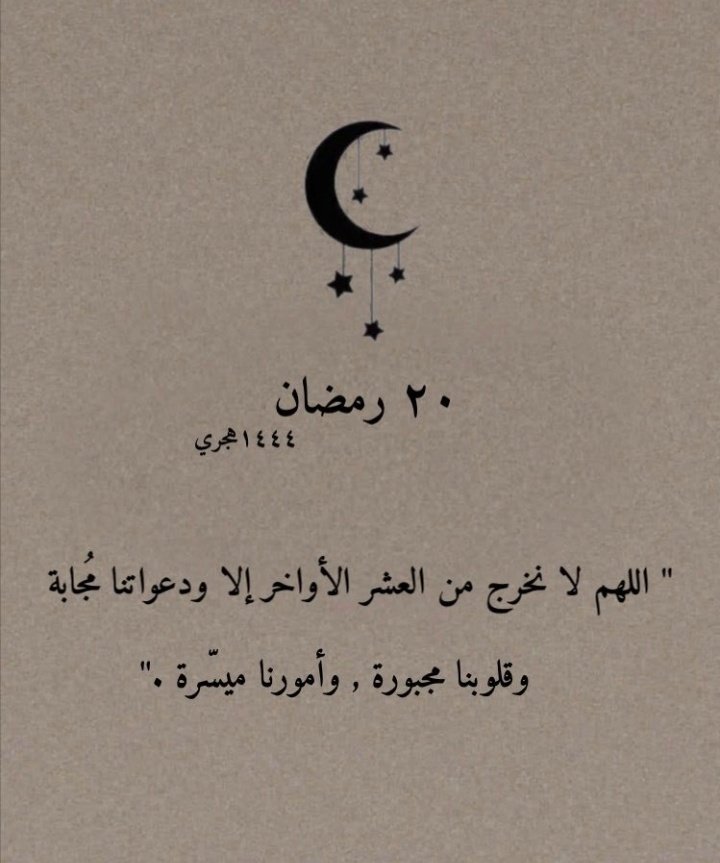 ٢٠ رمضان
١٤٤٤هجري
" اللهم لا نخرج من العشر الأواخر إلا ودعواتنا مُجابة
وقلوبنا مجبورة , وأمورنا ميسّرة ."